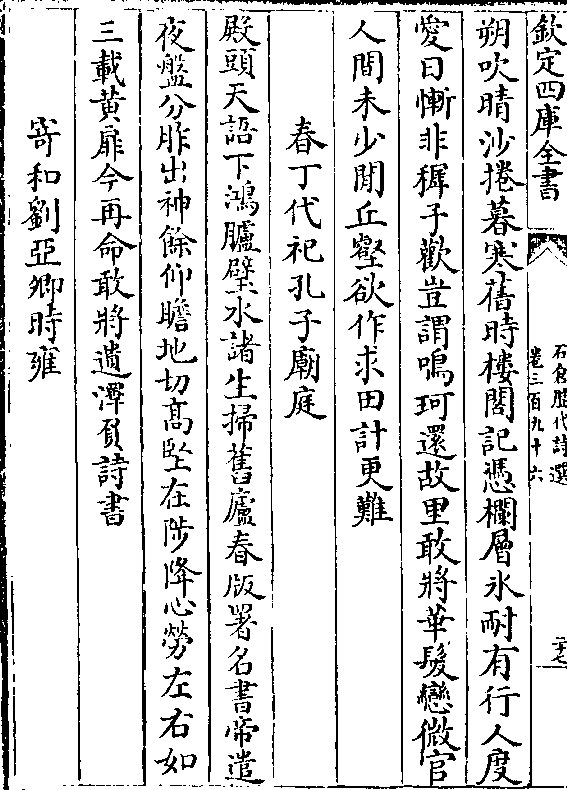 欽定四庫全書
石倉歷代詩選
卷三百九十六
二十七
朔吹晴沙捲暮寒舊時樓閣記憑欄層氷耐有行人度
愛日慚非穉子歡豈謂鳴珂還故里敢將華髮戀微官
人間未少閒丘壑欲作求田計更難
春丁代祀孔子廟庭
殿頭天語下鴻臚璧水諸生掃舊廬春版署名書帝遣
夜盤分胙出神餘仰瞻地切高堅在陟降心勞左右如
三載黄扉今再命敢將遺澤負詩書
寄和劉亞卿時雍